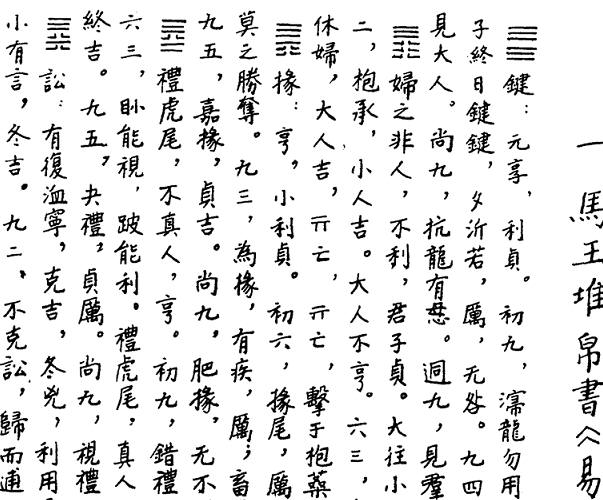 一 馬王堆帛書《易
䷀鍵:元享,利貞。初九,濡龍勿用
子終日鍵鍵,夕泝若,厲,无咎。九四
見大人。尚九,抗龍有𢘓。迵九,見羣
䷋婦之非人,不利,君子貞。大往小
二,抱承,小人吉。大人不亨。六三,
休婦,大人吉,亓亡,亓亡,擊于抱
䷠掾:亨,小利貞。初六,掾尾,厲
莫之勝奪。九三,為掾,有疾,厲;畜
九五,嘉掾,貞吉。尚九,肥掾,无不
䷉禮虎尾,不真人,亨。初九,錯禮
六三,眇能視,跛能利。禮虎尾,真人
終吉。九五,夬禮,貞厲。尚九,視禮
䷅訟:有復洫寧,克吉,冬兇,利用
小有言,冬吉。九二,不克訟,歸而逋